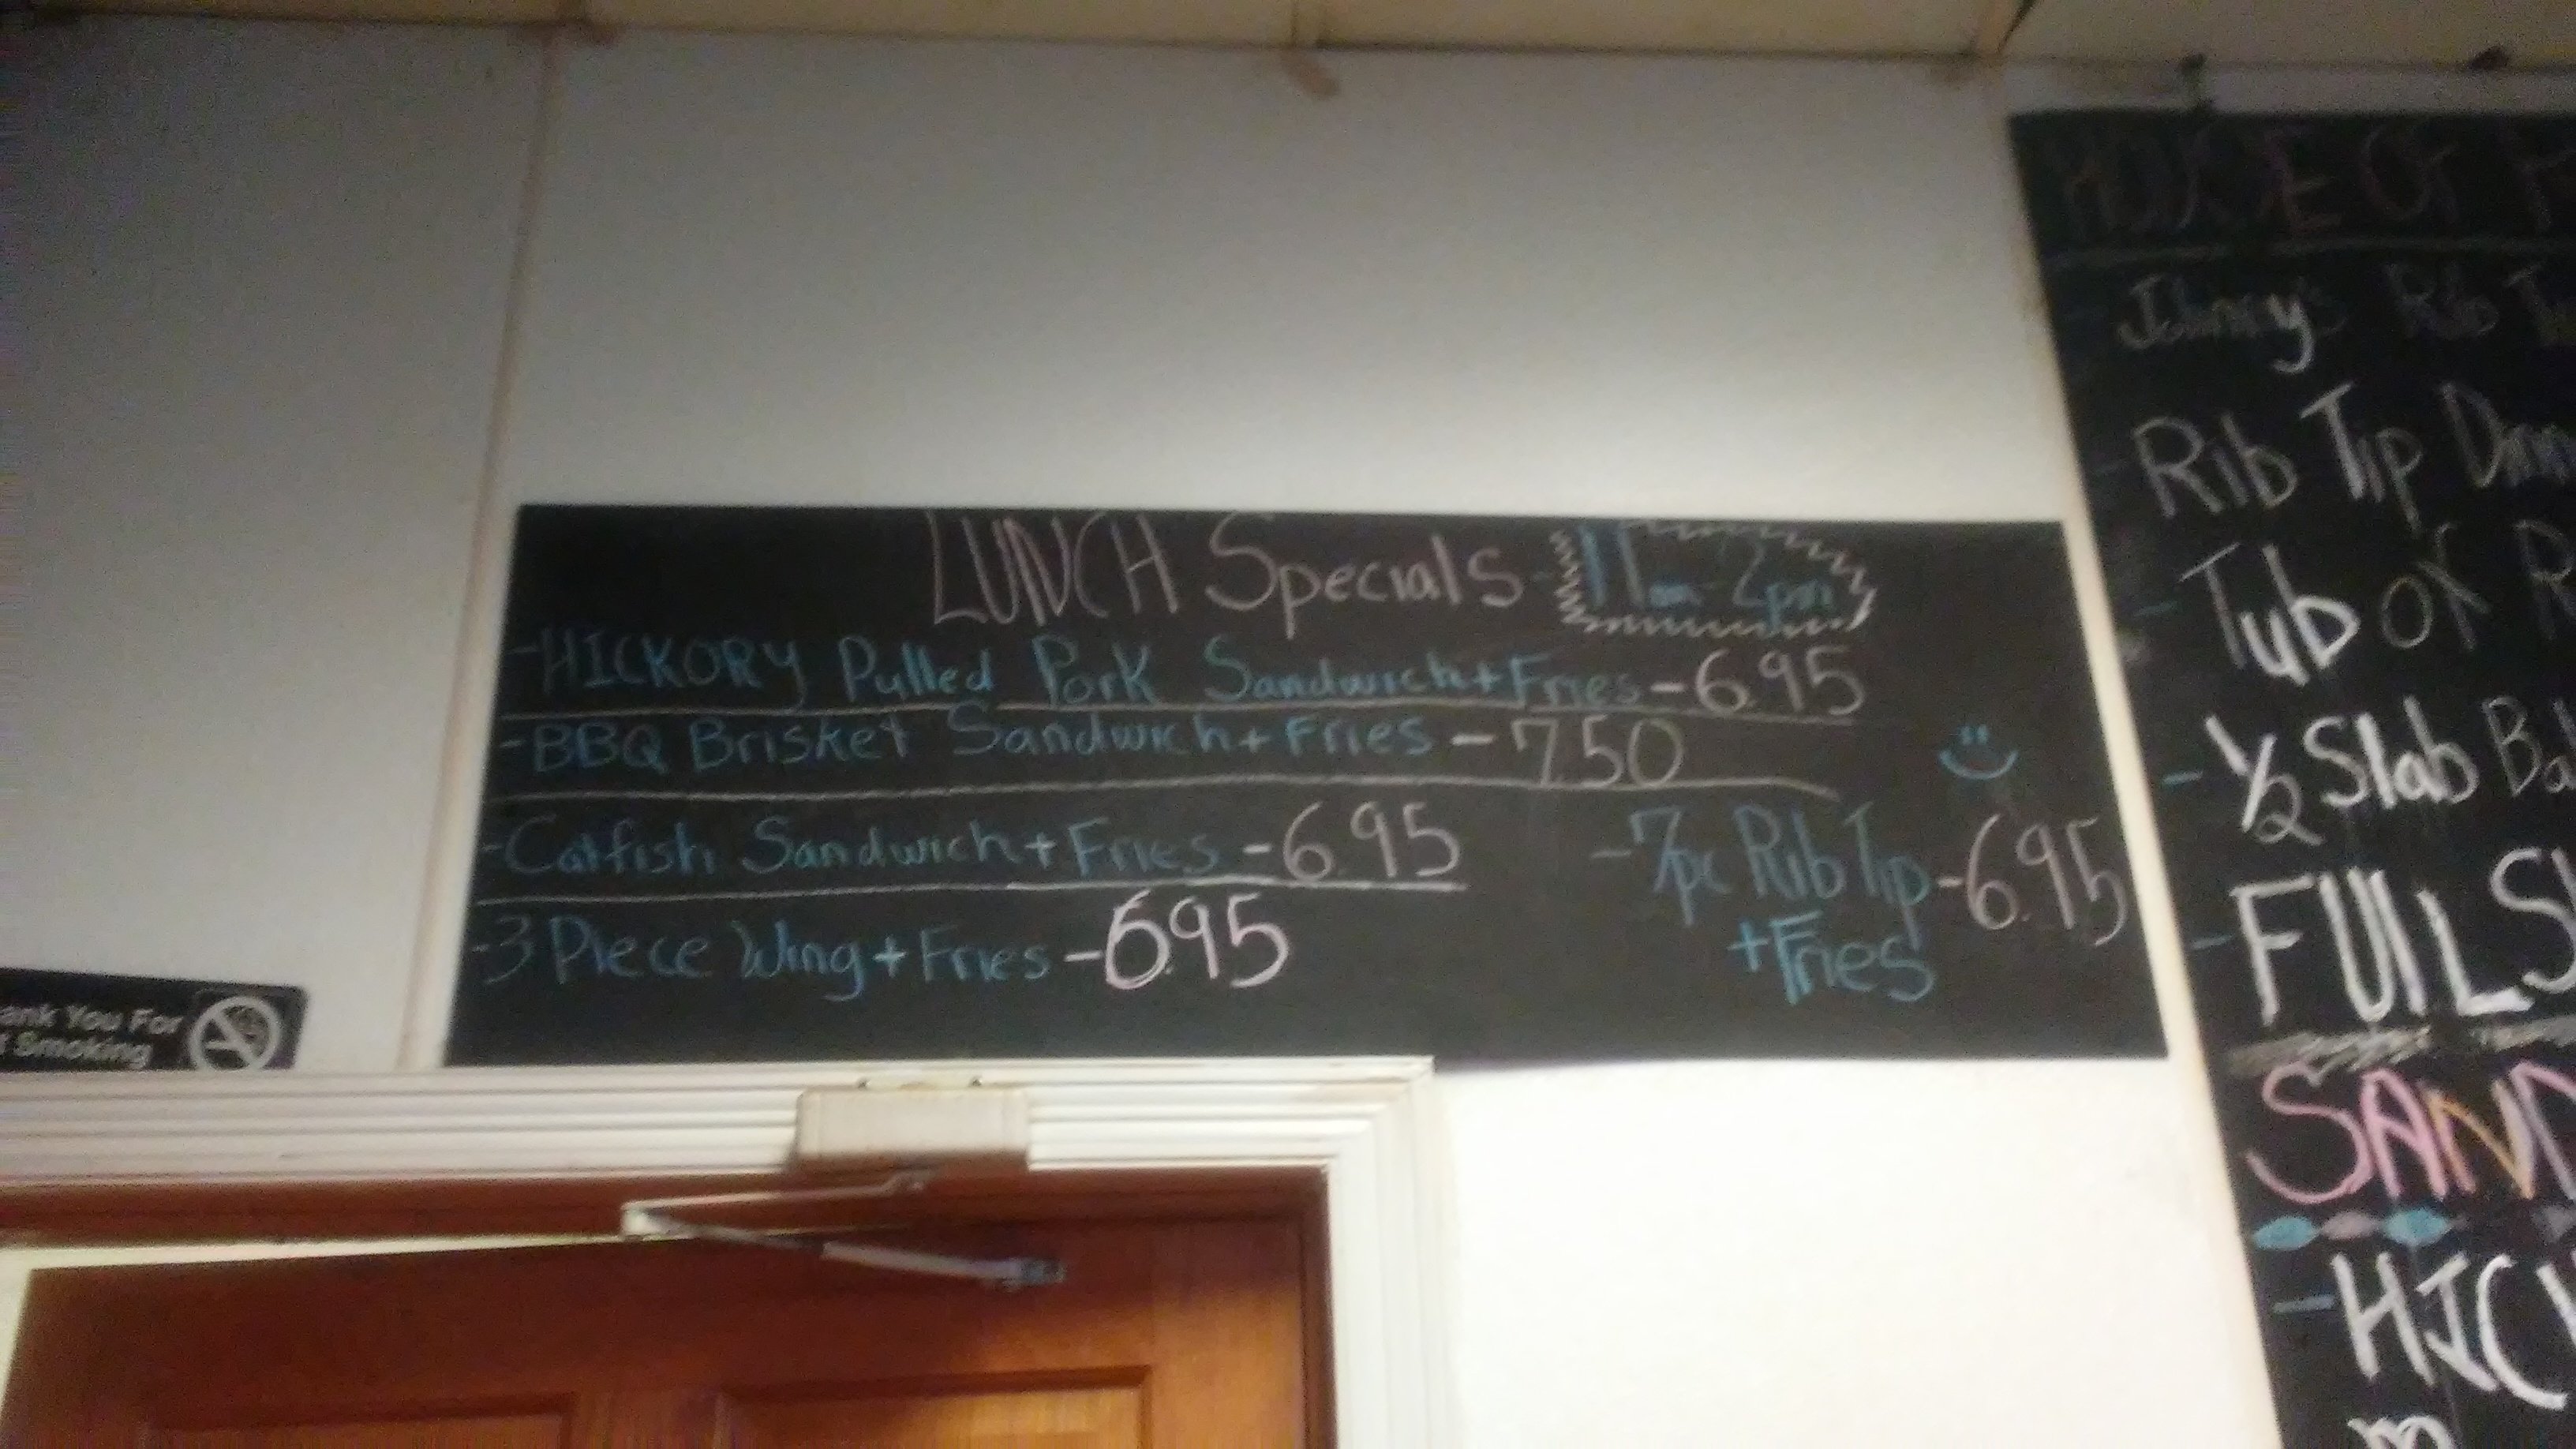 LUNCH Specials - 11am-2pm
-HICKORY Pulled Pork Sandwich+Fries-6.95
-BBQ Brisket Sandwich+Fries-7.50
-Catfish Sandwich+Fries-6.95
-3 Piece Wing+Fries-6.95
-7pc Rib Tip-6.95
+Fries
ank You For
Smoking
OF
Johnny's Rib
Rib Tip
- Tub of
- 1/2 Slab
- FULL
SAND
- HIC